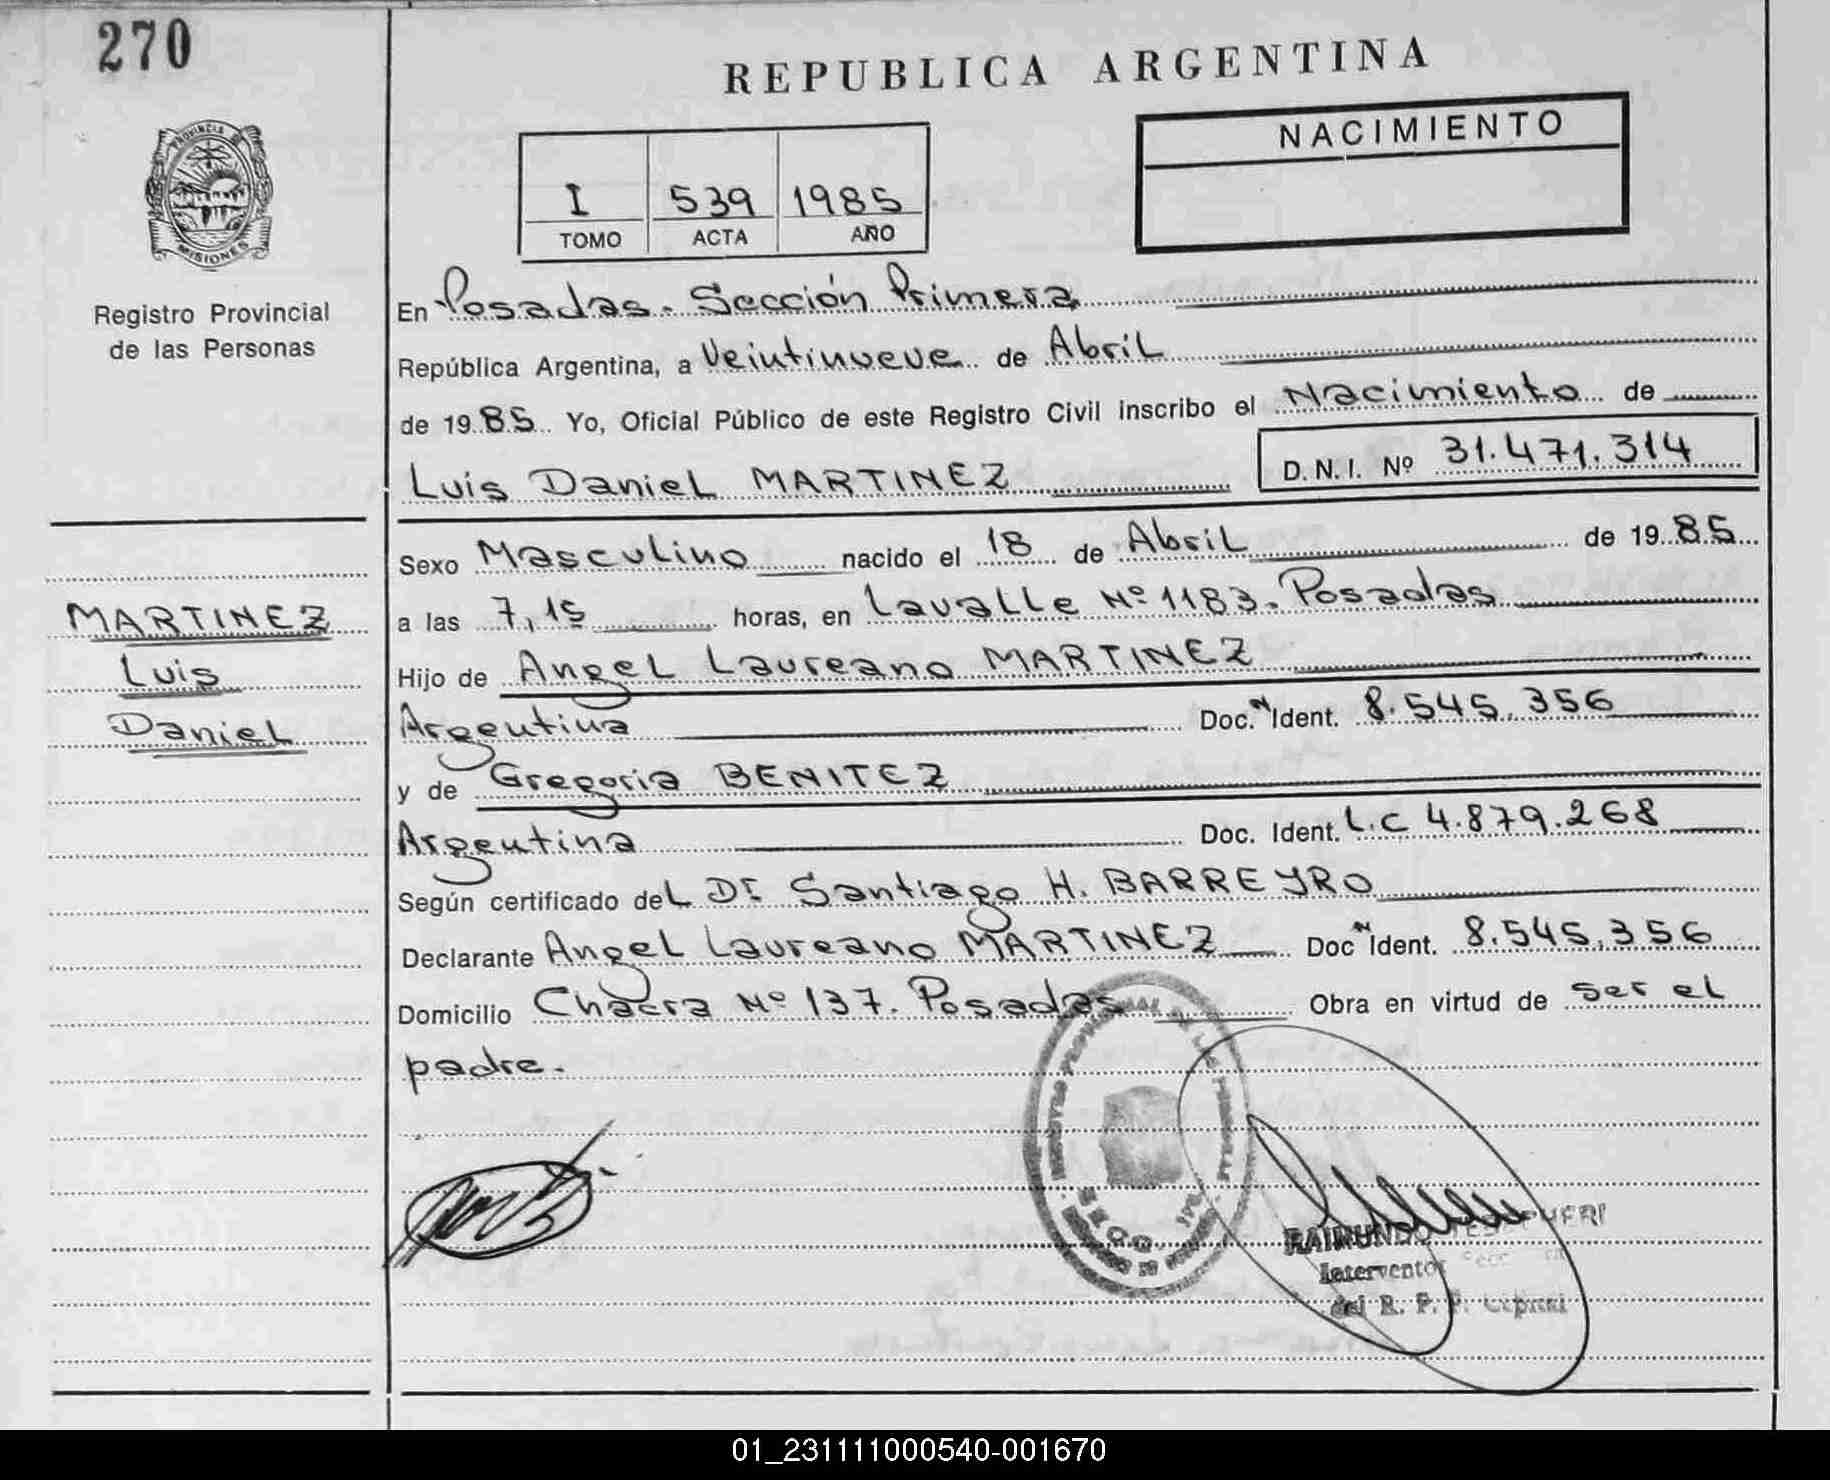 270
REPUBLICA ARGENTINA
PROVINCIA DE
MISIONES
Registro Provincial
de las Personas
I 539 1985
TOMO ACTA AÑO
NACIMIENTO
En Posadas. Sección Primera
República Argentina, a Veintinueve de Abril
de 1985 Yo, Oficial Público de este Registro Civil inscribo el Nacimiento de
Luis Daniel MARTINEZ D.N.I. Nº 31.471.314
Sexo Masculino nacido el 18 de Abril de 1985
a las 7,15 horas, en Lavalle Nº 1183. Posadas
Hijo de Angel Laureano MARTINEZ
Argentina Doc. Ident. 8.545.356
y de Gregoria BENITEZ
Argentina Doc. Ident. L.C 4.879.268
Según certificado del Dr Santiago H. BARREYRO
Declarante Angel Laureano MARTINEZ Doc Ident. 8.545.356
Domicilio Chacra Nº 137. Posadas Obra en virtud de ser el
padre.
MARTINEZ
Luis
Daniel
SECC. 1ra.
RAIMUNDO
Interventor
del R. P. P. Capital
01_231111000540-001670